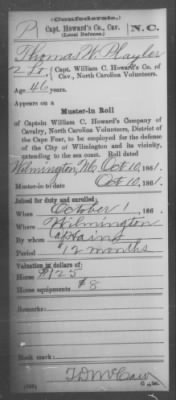 (Confederate.)
P Capt. Howard's Co., Cav. N. C.
(Local Defense.)
Thomas W. Player
Capt. William C. Howard's Co. of
Cav., North Carolina Volunteers.
Age 46 years.
Appears on a
Muster-in Roll
of Captain William C. Howard's Company of
Cavalry, North Carolina Volunteers, District of
the Cape Fear, to be employed for the defense
of the City of Wilmington and its vicinity,
extending to the sea coast. Roll dated
Wilmington, N.C. Oct 10, 1861.
Muster-in to date Oct 10, 1861.
Joined for duty and enrolled:
When October 1, 186 .
Where Wilmington
By whom Captain
Period 12 months
Valuation in dollars of:
Horse $125
Horse equipments $8
Remarks:
Book mark:
T. D. McCaw